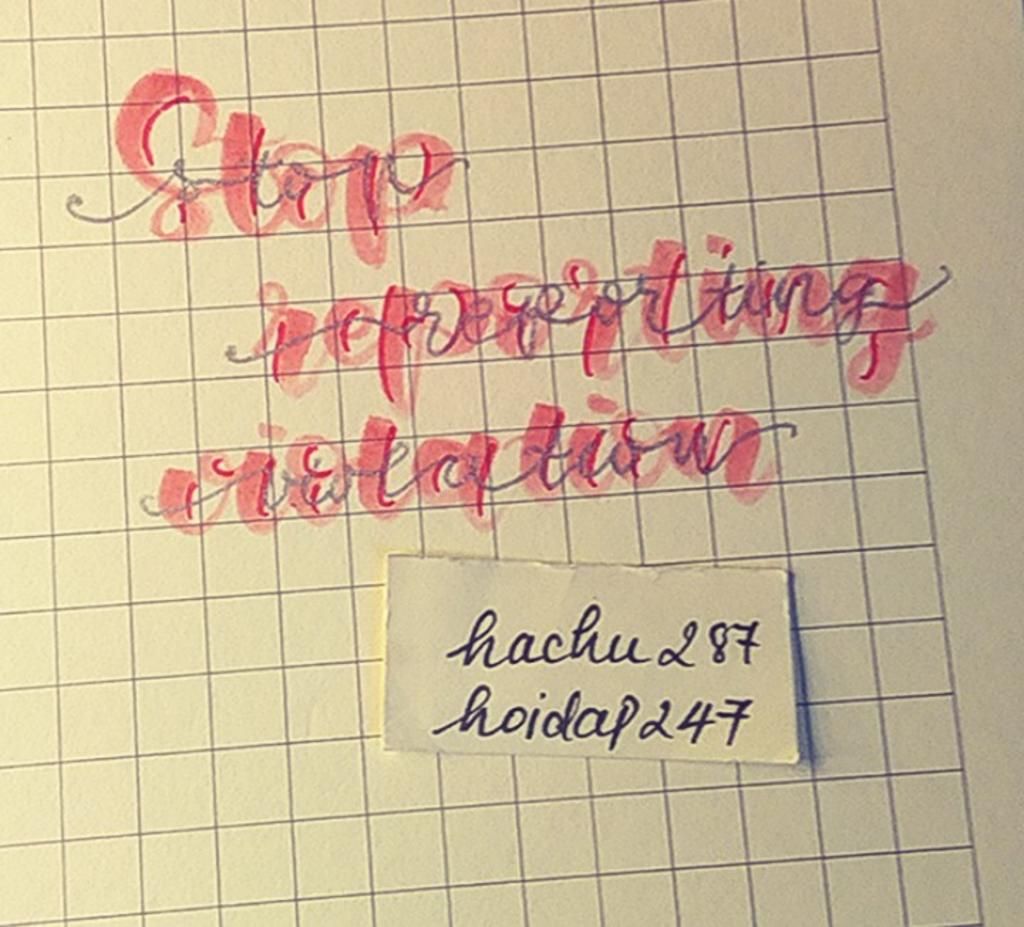 Stop
reporting
violation
hachu287
hoidap247